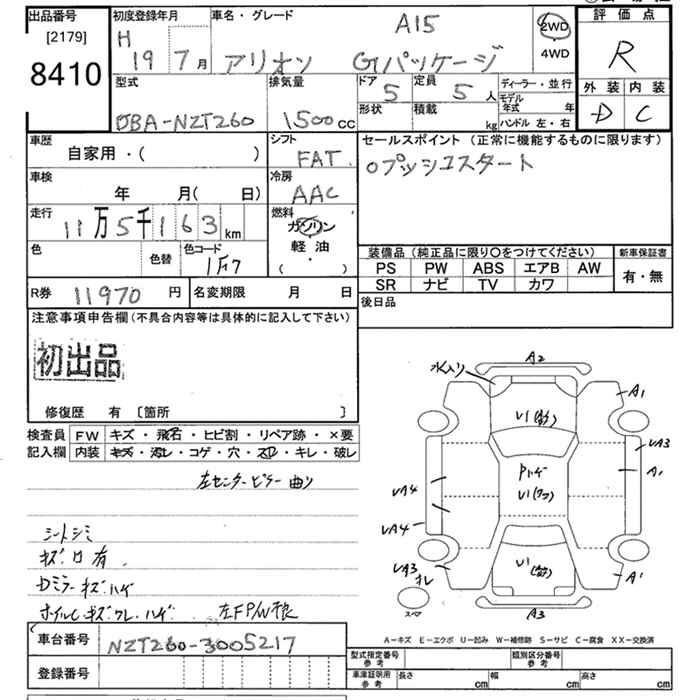 出品番号
[2179]
8410
初度登録年月
H
19 7月
車名・グレード
A15
アリオン G1パッケージ
2WD
4WD
評価点
R
外装 内装
D C
型式
DBA-NZT260
排気量
1500cc
ドア 5
定員 5人
形状
積載 kg
ディーラー・並行
モデル年式 年
ハンドル 左・右
車歴
自家用・( )
シフト
FAT
セールスポイント (正常に機能するものに限ります)
○プッシュスタート
車検
年 月( 日)
冷房
AAC
走行
11万5千163km
燃料
ガソリン
軽油
( )
色
色替
色コード
1F7
装備品(純正品に限り○をつけてください)
新車保証書
PS PW ABS エアB AW
SR ナビ TV カワ
有・無
R券 11970円
名変期限 月 日
後日品
注意事項申告欄(不具合内容等は具体的に記入して下さい)
初出品
修復歴 有 [箇所 ]
検査員
記入欄
FW キズ・飛石・ヒビ割・リペア跡・×要
内装 キズ・汚レ・コゲ・穴・スレ・キレ・破レ
左センターピラー曲り
シートシミ
キズ・凹有
Dミラーキズハゲ
左FP/W不良
水入り
A2
A1
U1
UA3
A1
Pハゲ
U1
UA4
UA4
UA3
U1
A1
スペア
A3
A－キズ E－エクボ U－凹み W－補修跡 S－サビ C－腐食 XX－交換済
車台番号 NZT260-3005217
登録番号
型式指定番号
参考
類別区分番号
参考
車庫証明用
参考
長さ cm
幅 cm
高さ cm